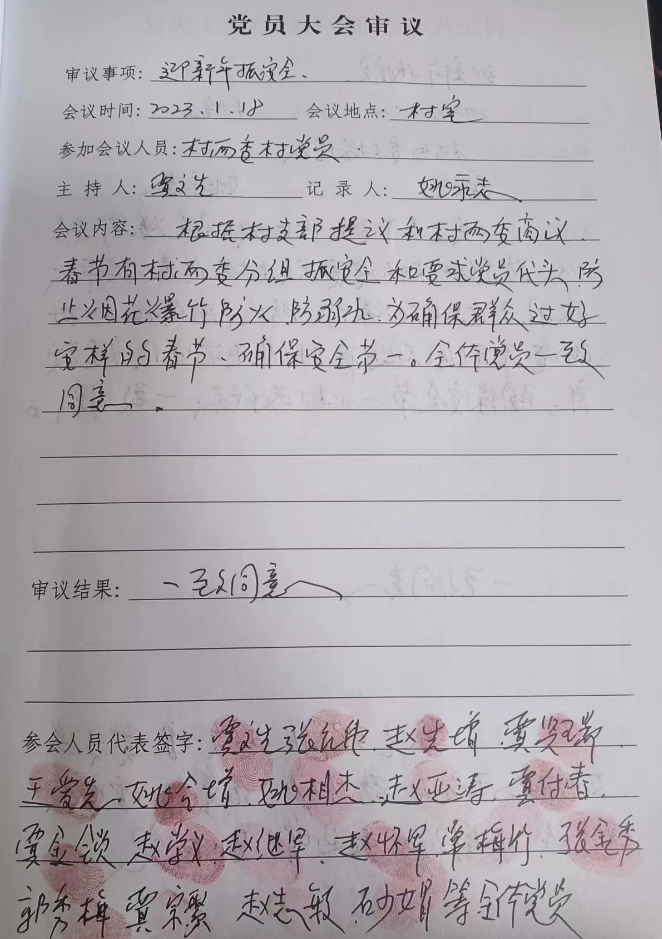 党员大会审议
审议事项: 迎新年抓安全、
会议时间: 2023.1.18 会议地点: 村室
参加会议人员: 村两委村党员
主持人: 贾文先 记录人: 姚
会议内容: 根据村支部提议和村两委商议.
春节有村两委分组抓安全和要求党员代头防
止烟花爆竹防火 为确保群众过好
的春节、确保安全第一。全体党员一致
同意.
审议结果: 一致同意
参会人员代表签字: 贾文先 赵先增
王爱先 姚令增 姚相杰 赵亚涛 贾付春
贾金锁 赵学义 赵继军 赵怀军 单梅竹 张金秀
郭秀梅 赵志敏 等全体党员